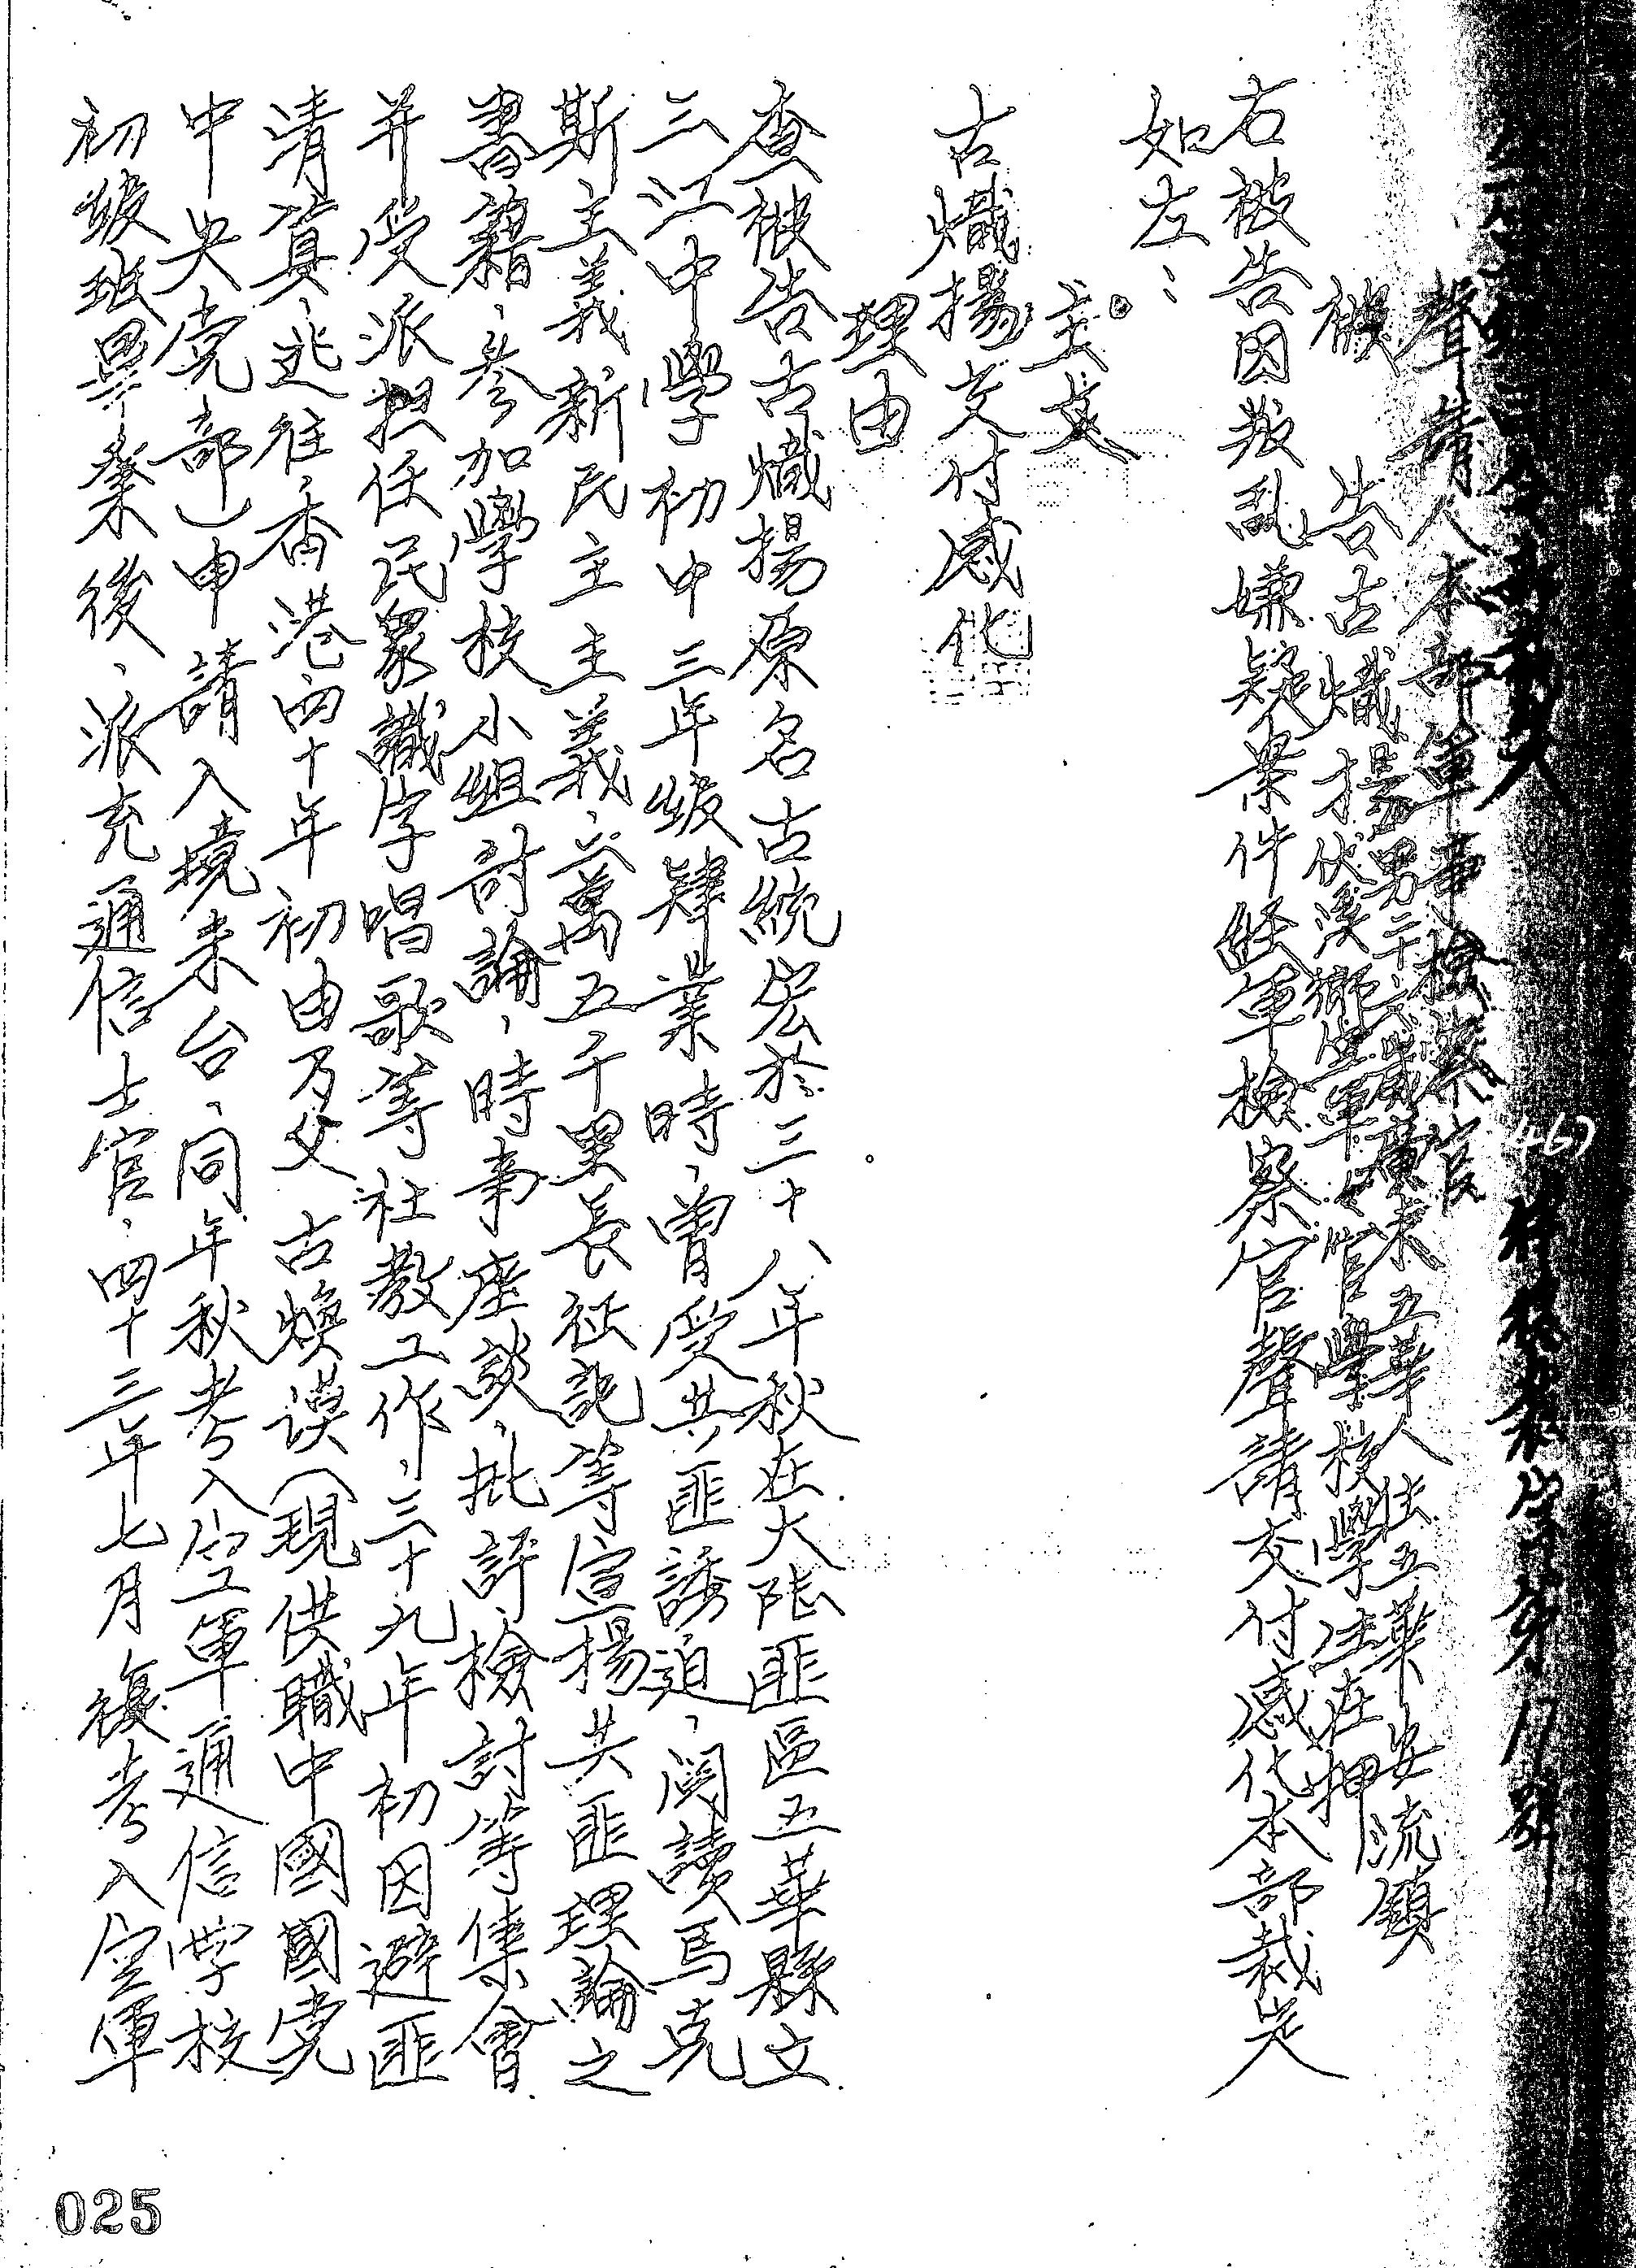 聲請人本部軍事檢察官
被告古熾揚男二十六歲廣東五華人住五華安流鎮
伏溪鄉空軍官學校學生在押
右被告因叛亂嫌疑案件經軍檢察官聲請交付感化本部裁定
如左:
主文
古熾揚交付感化。
理由
查被告古熾揚原名古統宏於三十八年秋在大陸匪區五華縣文
三江中學初中三年級肄業時、曾受共匪誘迫、閱讀馬克
斯主義新民主主義、二萬五千里長征記等宣揚共匪理論之
書籍、參加學校小組討論、時事座談、批評、檢討等集會
并受派担任民眾識字唱歌等社教工作、三十九年初因避匪
清算、逃往香港四十年初由乃父古煥謨(現供職中國國党
中央党部)申請入境来台、同年秋考入空軍通信学校
初級班畢業後、派充通信士官、四十三年七月復考入空軍
025